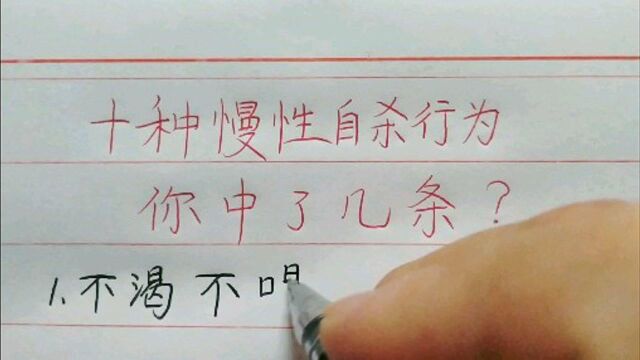 十种慢性自杀行为
你中了几条？
1.不渴不